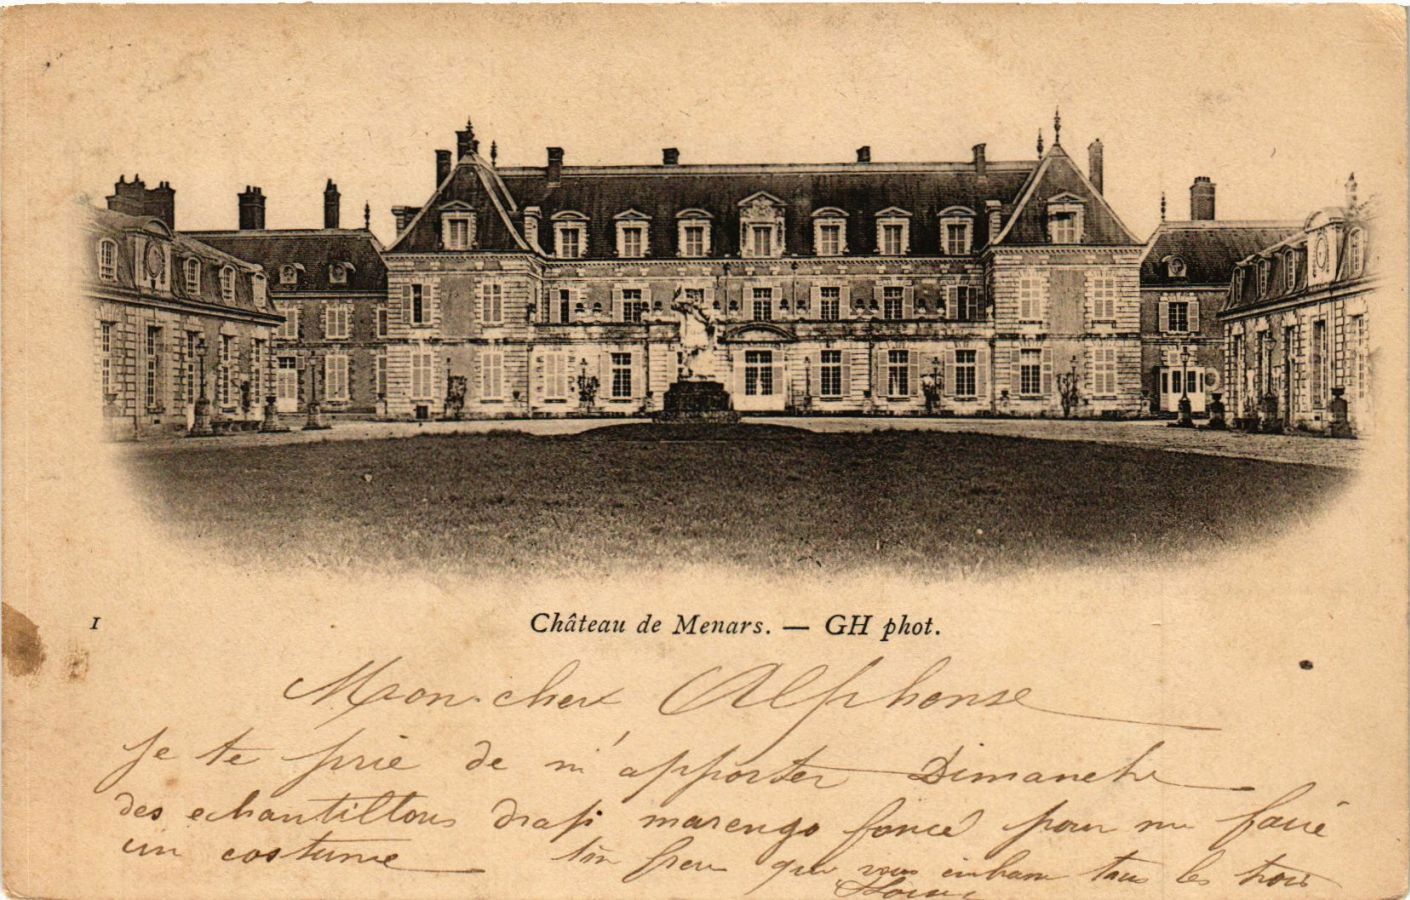 1
Château de Menars. — GH phot.
Mon cher Alphonse
je te prie de m'apporter Dimanche
des echantillons drap marengo foncé pour me faire
un costume ton frere qui vous embrasse tous les trois